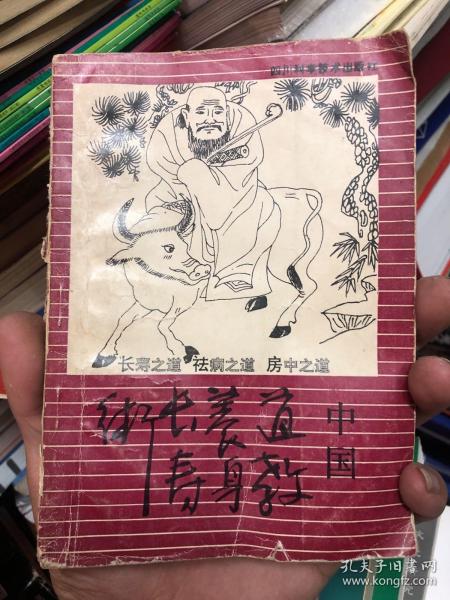 四川科学技术出版社
长寿之道 祛病之道 房中之道
中国
道教
养身
长寿
术
孔夫子旧书网
www.kongfz.com